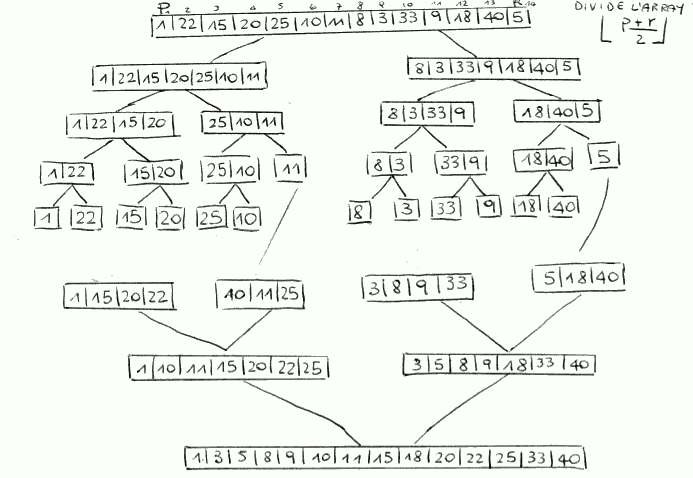 P1 2 3 4 5 6 7 8 9 10 11 12 13 14
DIVIDE L'ARRAY
1|22|15|20|25|10|11|8|3|33|9|18|40|5
⌊ p+r / 2 ⌋
1|22|15|20|25|10|11
8|3|33|9|18|40|5
1|22|15|20
25|10|11
8|3|33|9
18|40|5
1|22
15|20
25|10
11
8|3
33|9
18|40
5
1
22
15
20
25
10
8
3
33
9
18
40
1|15|20|22
10|11|25
3|8|9|33
5|18|40
1|10|11|15|20|22|25
3|5|8|9|18|33|40
1|3|5|8|9|10|11|15|18|20|22|25|33|40